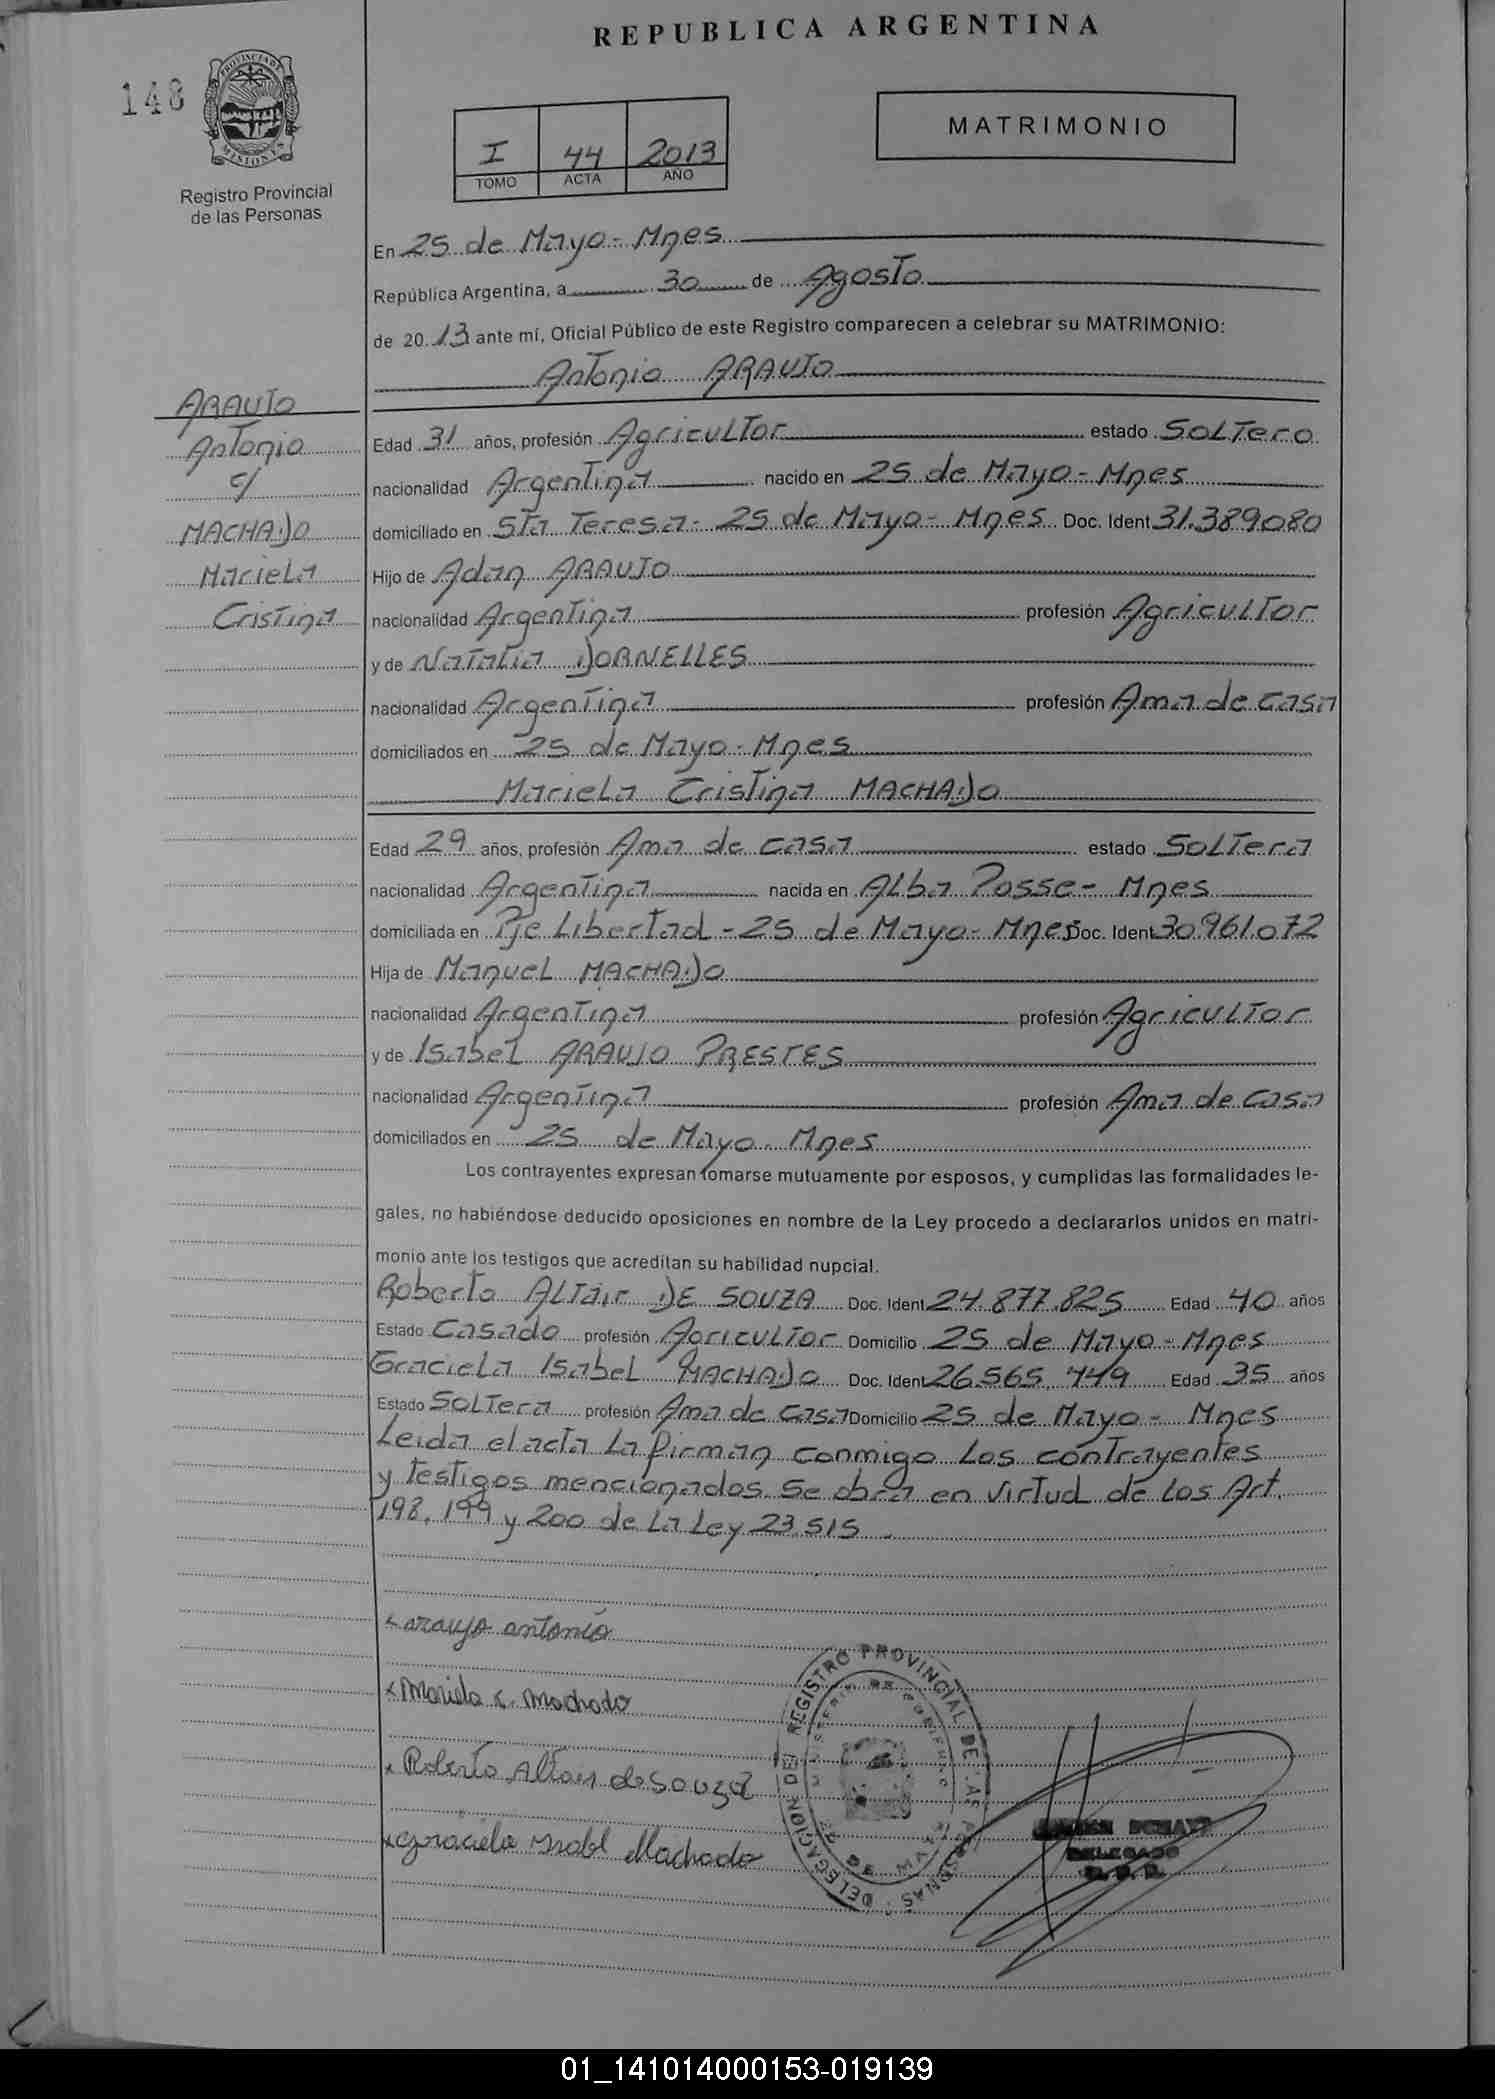 REPUBLICA ARGENTINA
148
PROVINCIA DE
MISIONES
Registro Provincial
de las Personas
I 44 2013
TOMO ACTA AÑO
MATRIMONIO
En 25 de Mayo - Mnes
República Argentina, a 30 de Agosto
de 2013 ante mí, Oficial Público de este Registro comparecen a celebrar su MATRIMONIO:
Antonio ARAUJO
ARAUJO
Antonio
c/
MACHADO
Mariela
Cristina
Edad 31 años, profesión Agricultor estado Soltero
nacionalidad Argentina nacido en 25 de Mayo - Mnes
domiciliado en Sta Teresa - 25 de Mayo - Mnes Doc. Ident 31.389080
Hijo de Adan ARAUJO
nacionalidad Argentina profesión Agricultor
y de Natalia DORNELLES
nacionalidad Argentina profesión Ama de Casa
domiciliados en 25 de Mayo - Mnes
Mariela Cristina MACHADO
Edad 29 años, profesión Ama de casa estado Soltera
nacionalidad Argentina nacida en Alba Posse - Mnes
domiciliada en Pje Libertad - 25 de Mayo - Mnes Doc. Ident 30.961.072
Hija de Manuel MACHADO
nacionalidad Argentina profesión Agricultor
y de Isabel ARAUJO PRESTES
nacionalidad Argentina profesión Ama de Casa
domiciliados en 25 de Mayo - Mnes
Los contrayentes expresan tomarse mutuamente por esposos, y cumplidas las formalidades le-
gales, no habiéndose deducido oposiciones en nombre de la Ley procedo a declararlos unidos en matri-
monio ante los testigos que acreditan su habilidad nupcial.
Roberto ALTAIR DE SOUZA Doc. Ident 24.877.825 Edad 40 años
Estado Casado profesión Agricultor Domicilio 25 de Mayo - Mnes
Graciela Isabel MACHADO Doc. Ident 26.565.449 Edad 35 años
Estado Soltera profesión Ama de Casa Domicilio 25 de Mayo - Mnes
Leida el acta la firman conmigo los contrayentes
y testigos mencionados. Se obra en virtud de los Art.
198, 199 y 200 de la Ley 23.515
x araujo antonio
x Mariela C. Machado
x Roberto Altair de Souza
x Graciela Isabel Machado
DELEGACION DEL REGISTRO PROVINCIAL DE LAS PERSONAS
MINISTERIO DE GOBIERNO
25 DE MAYO
DELEGADO
01_141014000153-019139